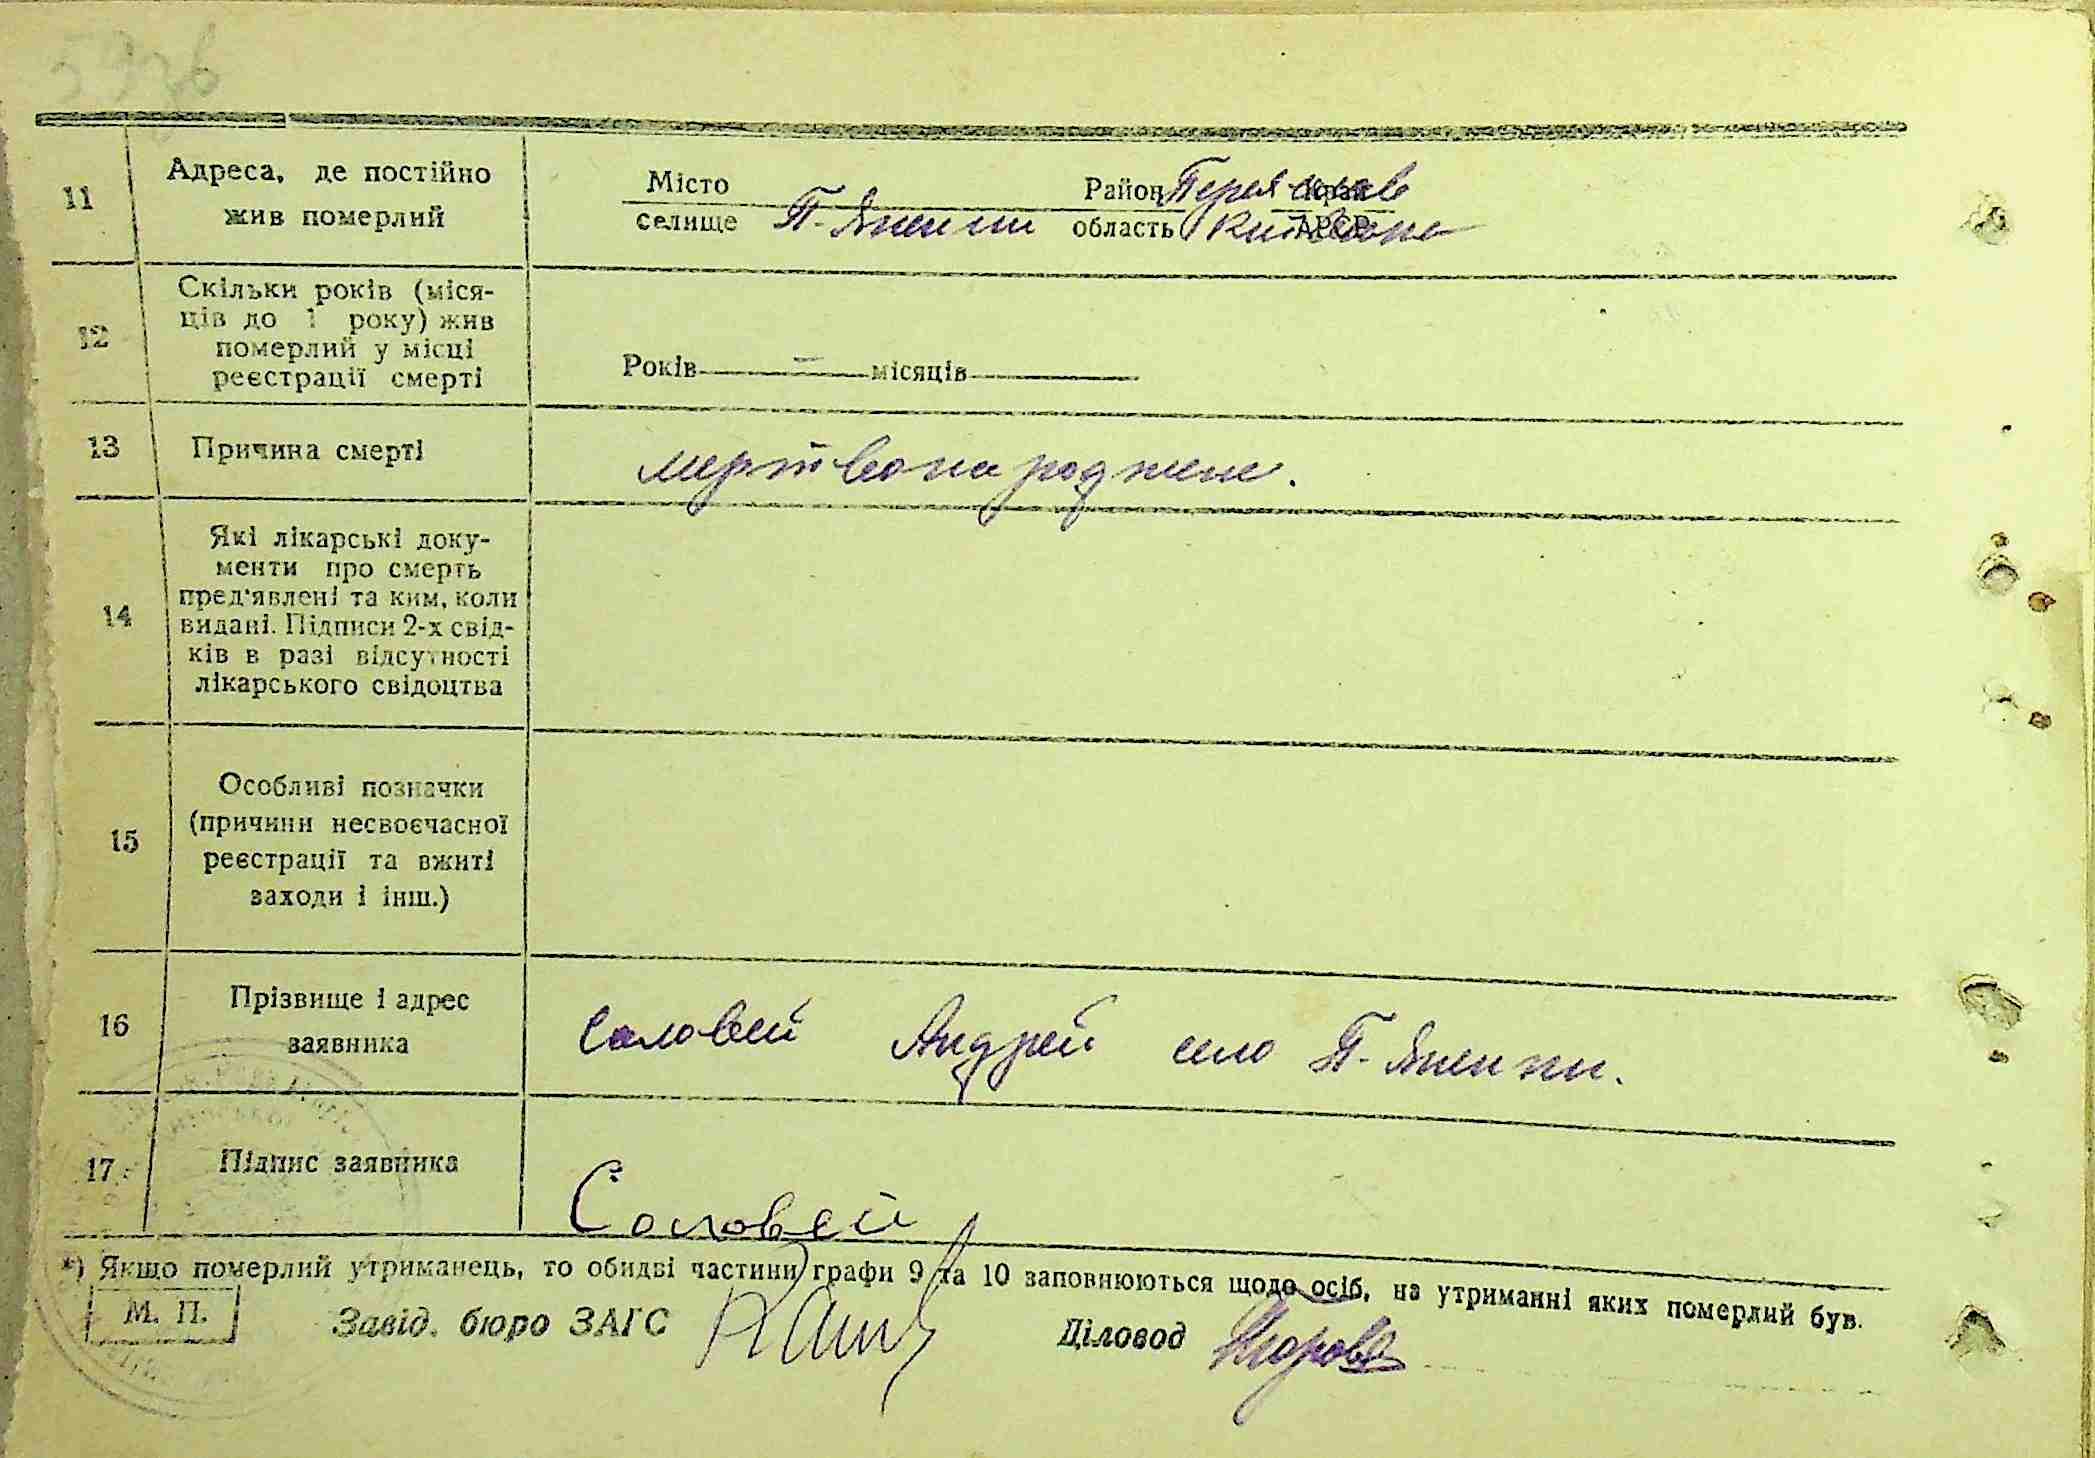 11
Адреса, де постійно
жив померлий
Місто
селище П-Яненки
Район Переяслав край
область Київська АРСР
12
Скільки років (міся-
ців до 1 року) жив
померлий у місці
реєстрації смерті
Років — місяців
13
Причина смерті
мертвонароджене.
14
Які лікарські доку-
менти про смерть
пред'явлені та ким, коли
видані. Підписи 2-х свід-
ків в разі відсутності
лікарського свідоцтва
15
Особливі позначки
(причини несвоєчасної
реєстрації та вжиті
заходи і інш.)
16
Прізвище і адрес
заявника
Соловей Андрей село П-Яненки.
17
Підпис заявника
Соловей
*) Якщо померлий утриманець, то обидві частини графи 9 та 10 заповнюються щодо осіб, на утриманні яких померлий був.
М. П.
Завід. бюро ЗАГС
Діловод